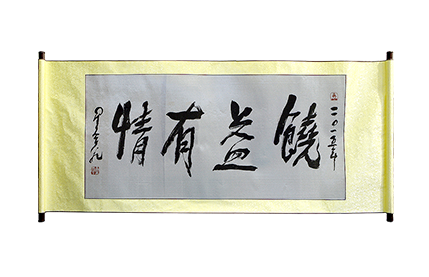 二〇一五年
饶益有情